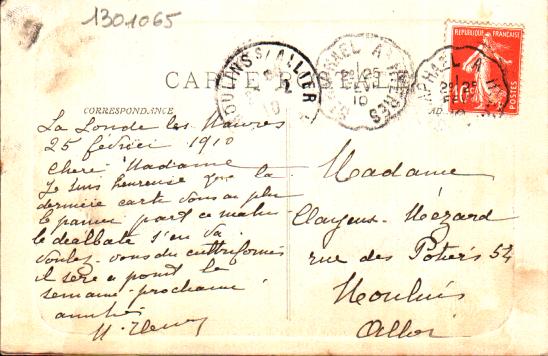 1301065
CARTE POSTALE
CORRESPONDANCE
MOULINS S/ ALLIER
RAPHAEL A HYERES
25
10
REPUBLIQUE FRANCAISE
POSTES
10
La Londe les Maures
25 février 1910
Chère Madame
Je suis heureuse que la
dernière carte vous ai plu
le panier part ce matin
le dealbata s'en va
voulez-vous du cultriformis
il sera à point la
semaine prochaine
amitiés
Madame
Mézard
rue des Potiers 54
Moulins
Allier